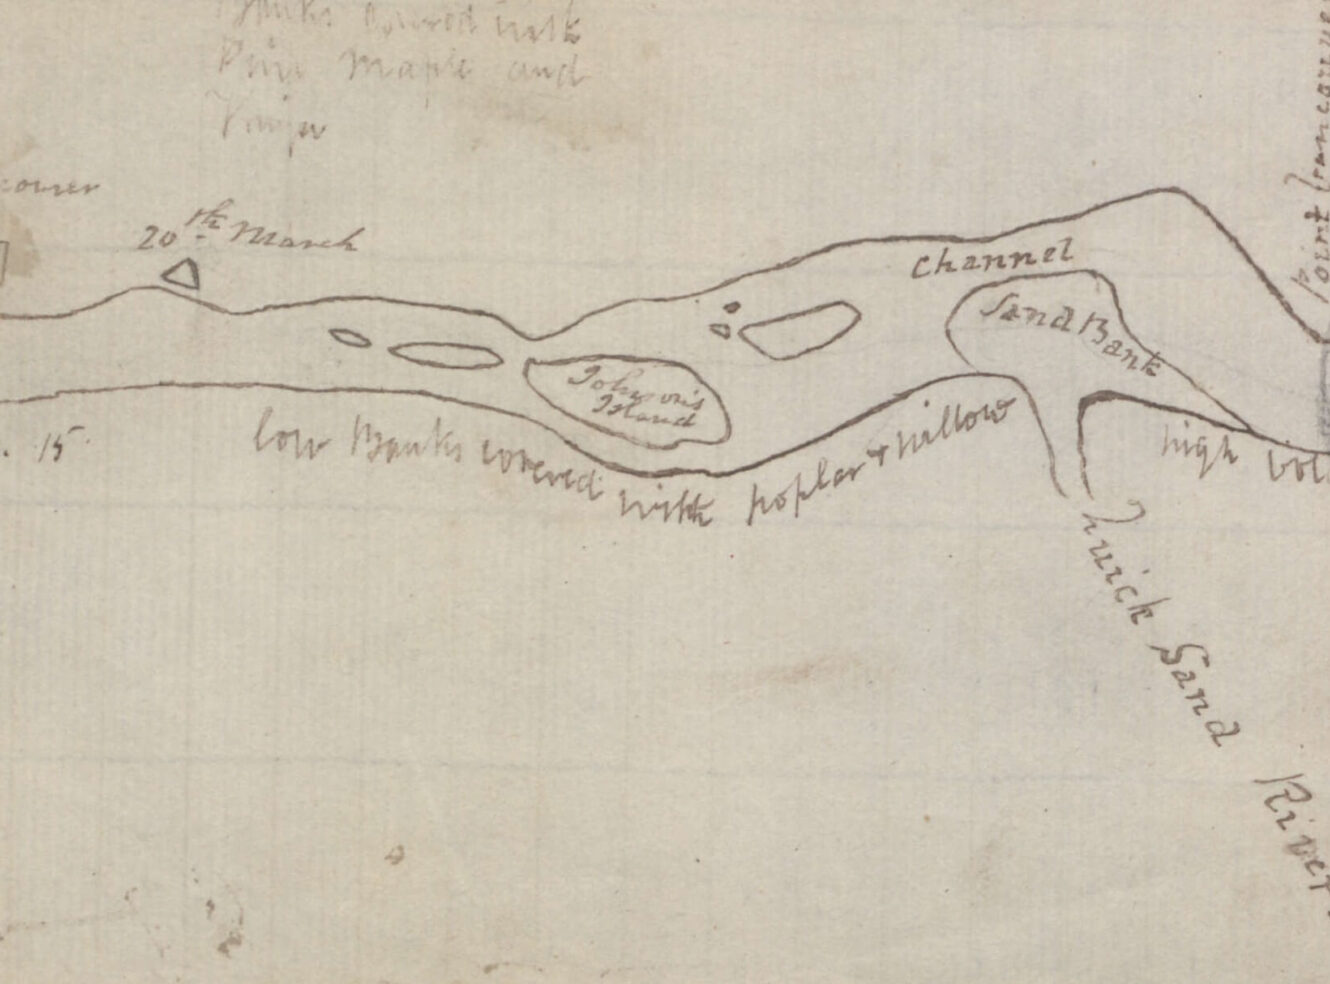 Banks covered with
Pine Maple and
20th March
Channel
Sand Bank
Johnson's
Island
15
low Banks covered with poplar & willow
high
Quick Sand River
Point